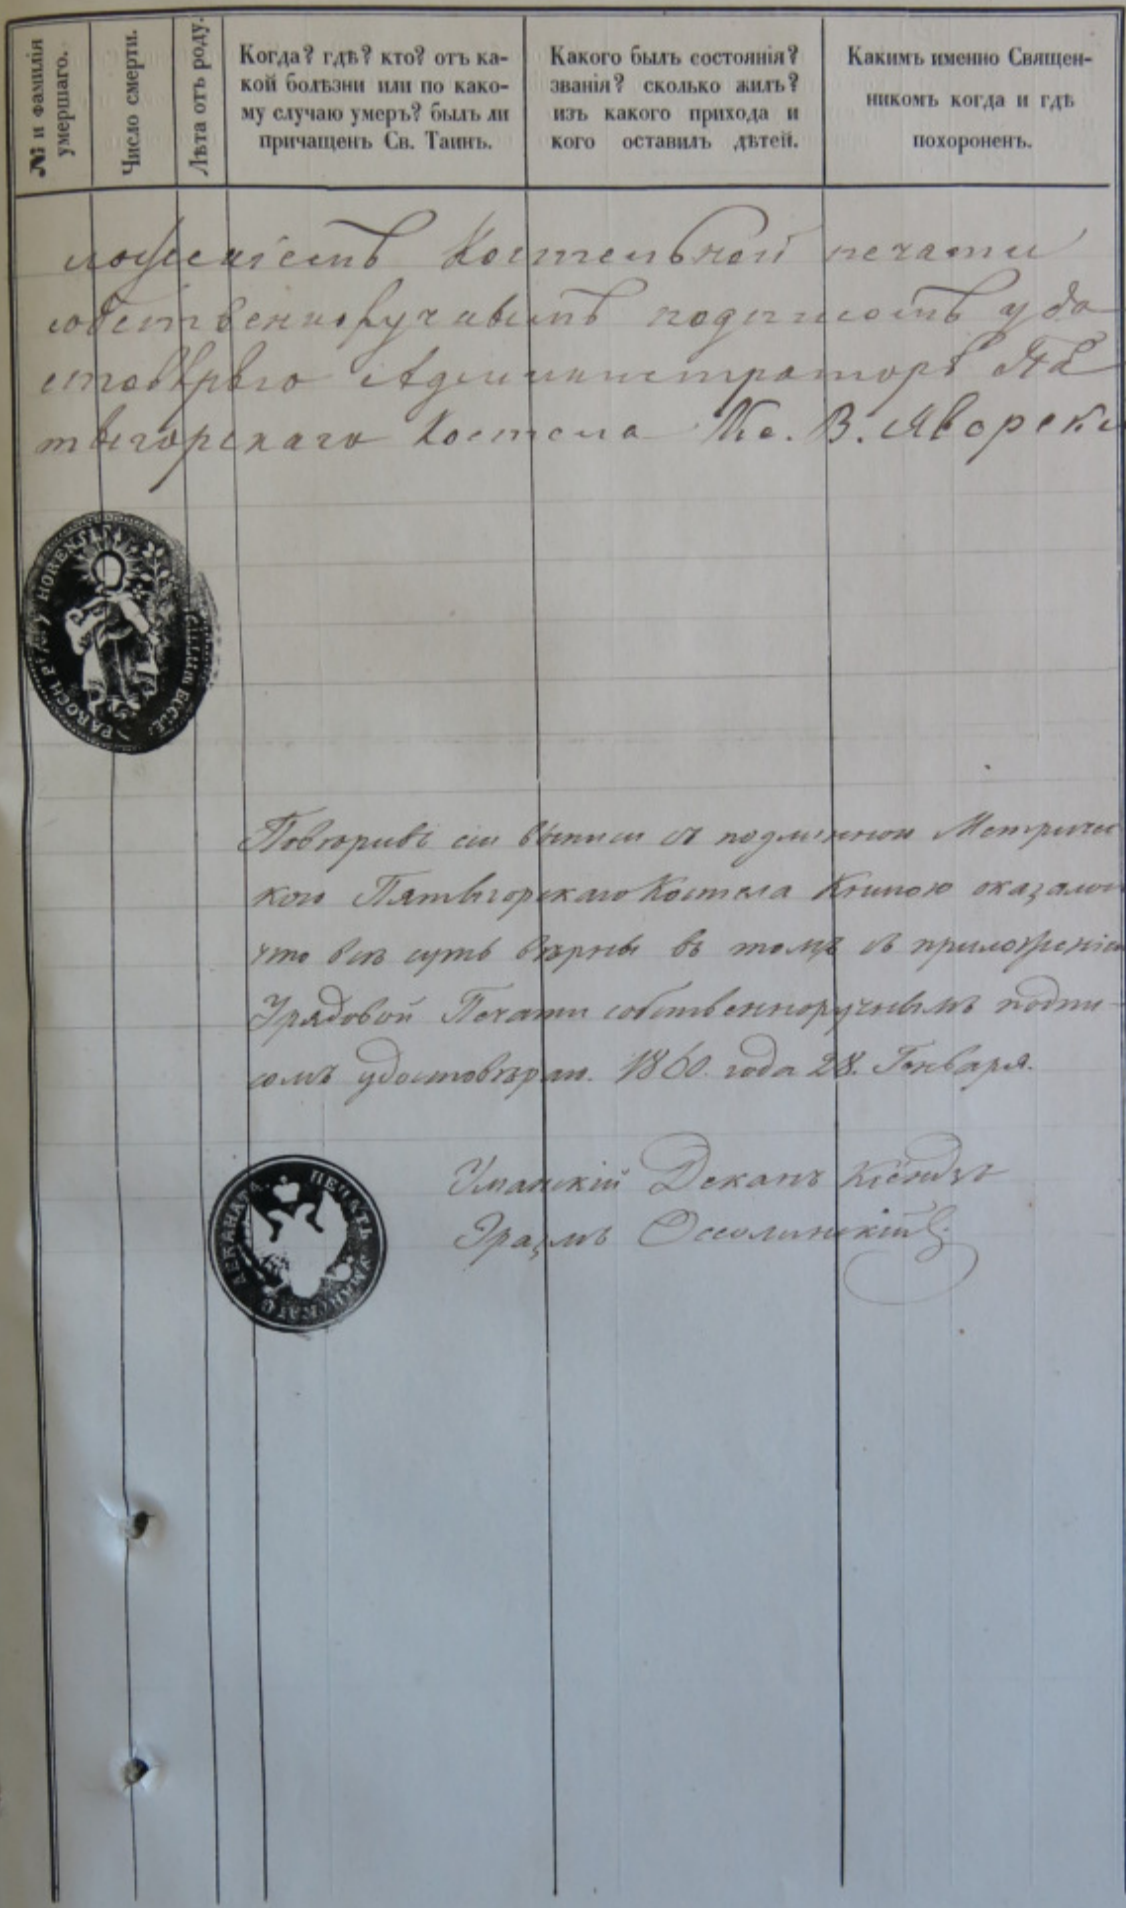 № и фамилія
умершаго.
Число смерти.
Лѣта отъ роду.
Когда? гдѣ? кто? отъ ка-
кой болѣзни или по како-
му случаю умеръ? былъ ли
причащенъ Св. Таинъ.
Какого былъ состоянія?
званія? сколько жилъ?
изъ какого прихода и
кого оставилъ дѣтей.
Какимъ именно Священ-
никомъ когда и гдѣ
похороненъ.
ложеніемъ Костельной печати
собственноручнымъ подписомъ удо
стовѣряю Администраторъ Пя
тыгорскаго Костела Кс. В. Яворски
PAROCH PIATYHORENSIS
SIGILLUM ECCLE.
сіи выписи съ подлинною Метричес
кого Пятыгорскаго Костела Книгою оказалось
что всѣ суть вѣрны въ томъ съ приложеніемъ
Урядовой Печати собственноручнымъ подпи-
сомъ удостовѣряю. 1860. года 28. Генваря.
ПЕЧАТЬ УМАНСКАГО ДЕКАНАТА
Уманскій Деканъ Ксендзъ
Эразмъ Оссолинскій